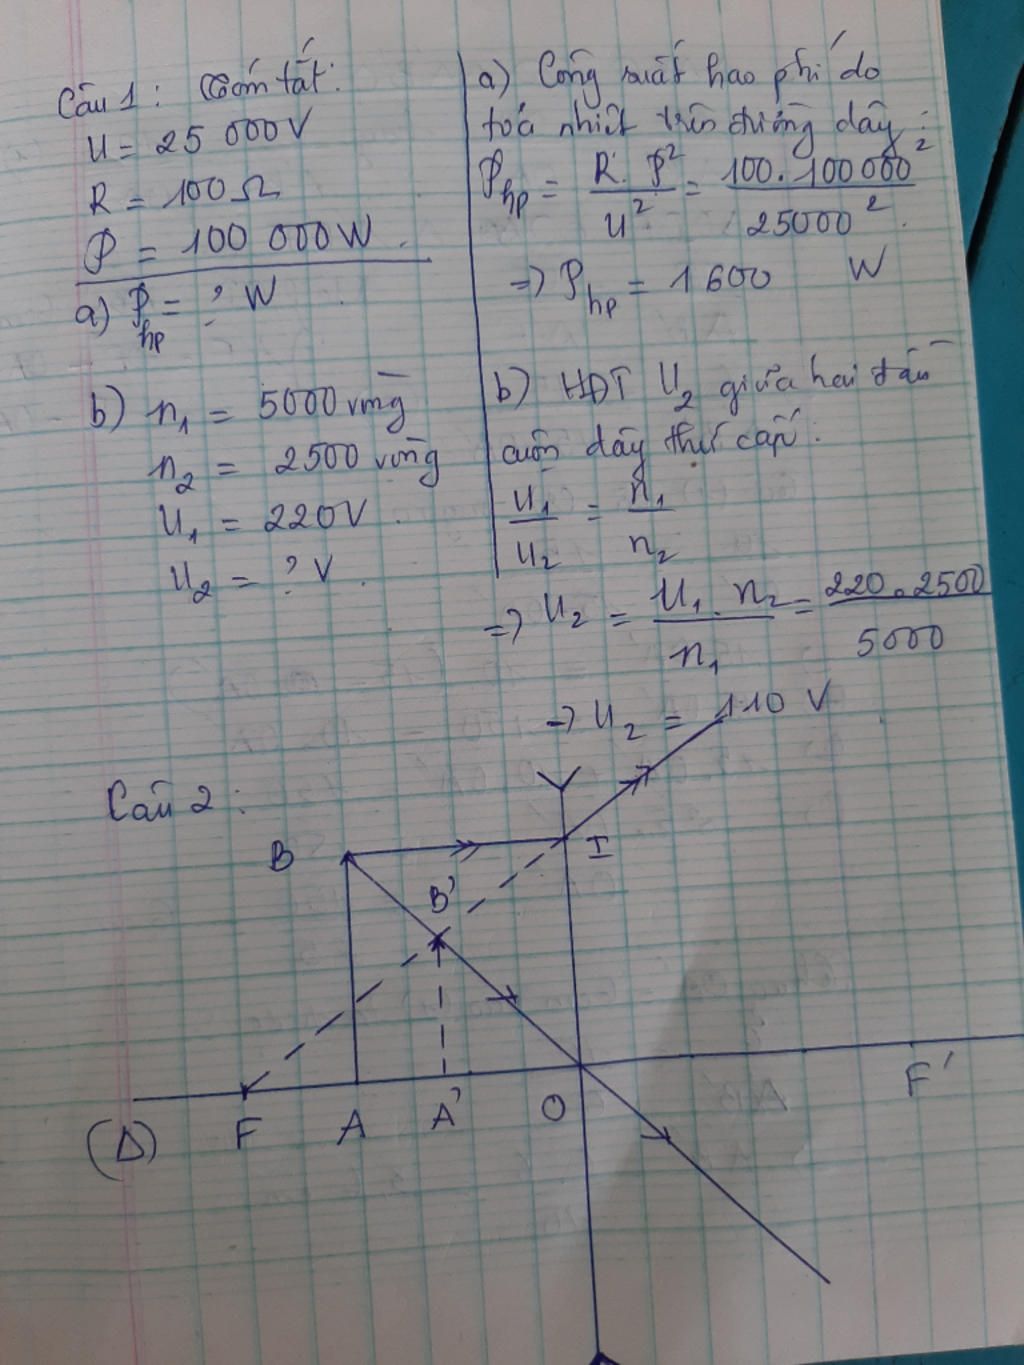 Câu 1: Tóm tắt:
U = 25 000V
R = 100Ω
P = 100 000W.
a) P hp = ? W
b) n₁ = 5000 vòng
n₂ = 2500 vòng
U₁ = 220V.
U₂ = ? V.
a) Công suất hao phí do
toả nhiệt trên đường dây:
P hp = R.P² / U² = 100.100000² / 25000²
=> P hp = 1600 W
b) HĐT U₂ giữa hai đầu
cuộn dây thứ cấp:
U₁ / U₂ = n₁ / n₂
=> U₂ = U₁.n₂ / n₁ = 220.2500 / 5000
=> U₂ = 110 V
Câu 2:
B I
B'
(Δ) F A A' O F'